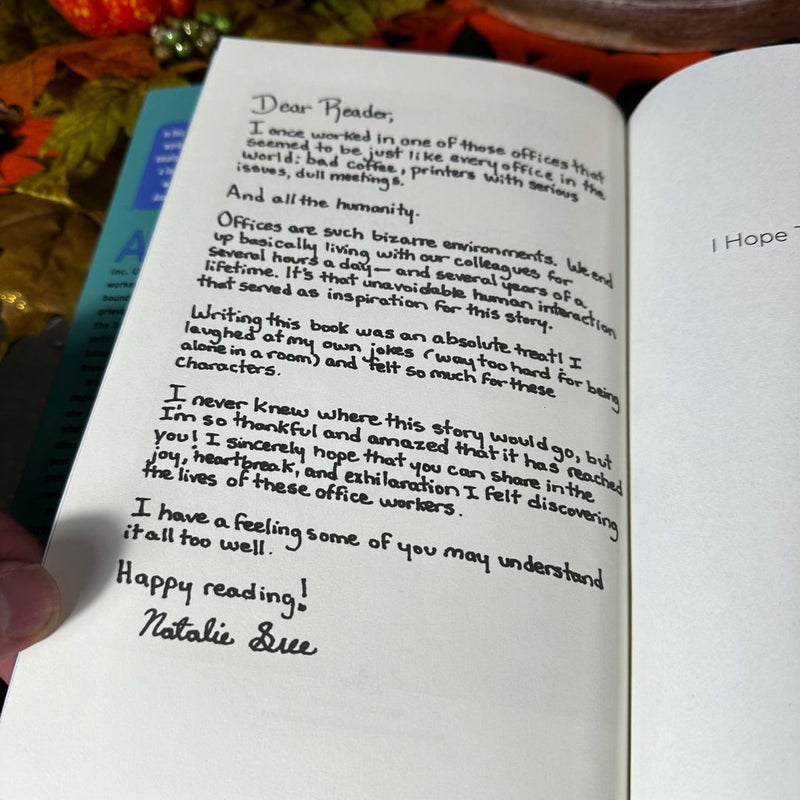 Dear Reader,
I once worked in one of those offices that
seemed to be just like every office in the
world: bad coffee, printers with serious
issues, dull meetings.
And all the humanity.
Offices are such bizarre environments. We end
up basically living with our colleagues for
several hours a day— and several years of a
lifetime. It's that unavoidable human interaction
that served as inspiration for this story.
Writing this book was an absolute treat! I
laughed at my own jokes (way too hard for being
alone in a room) and felt so much for these
characters.
I never knew where this story would go, but
I'm so thankful and amazed that it has reached
you! I sincerely hope that you can share in the
joy, heartbreak, and exhilaration I felt discovering
the lives of these office workers.
I have a feeling some of you may understand
it all too well.
Happy reading!
Natalie Sue
I Hope
Inc.